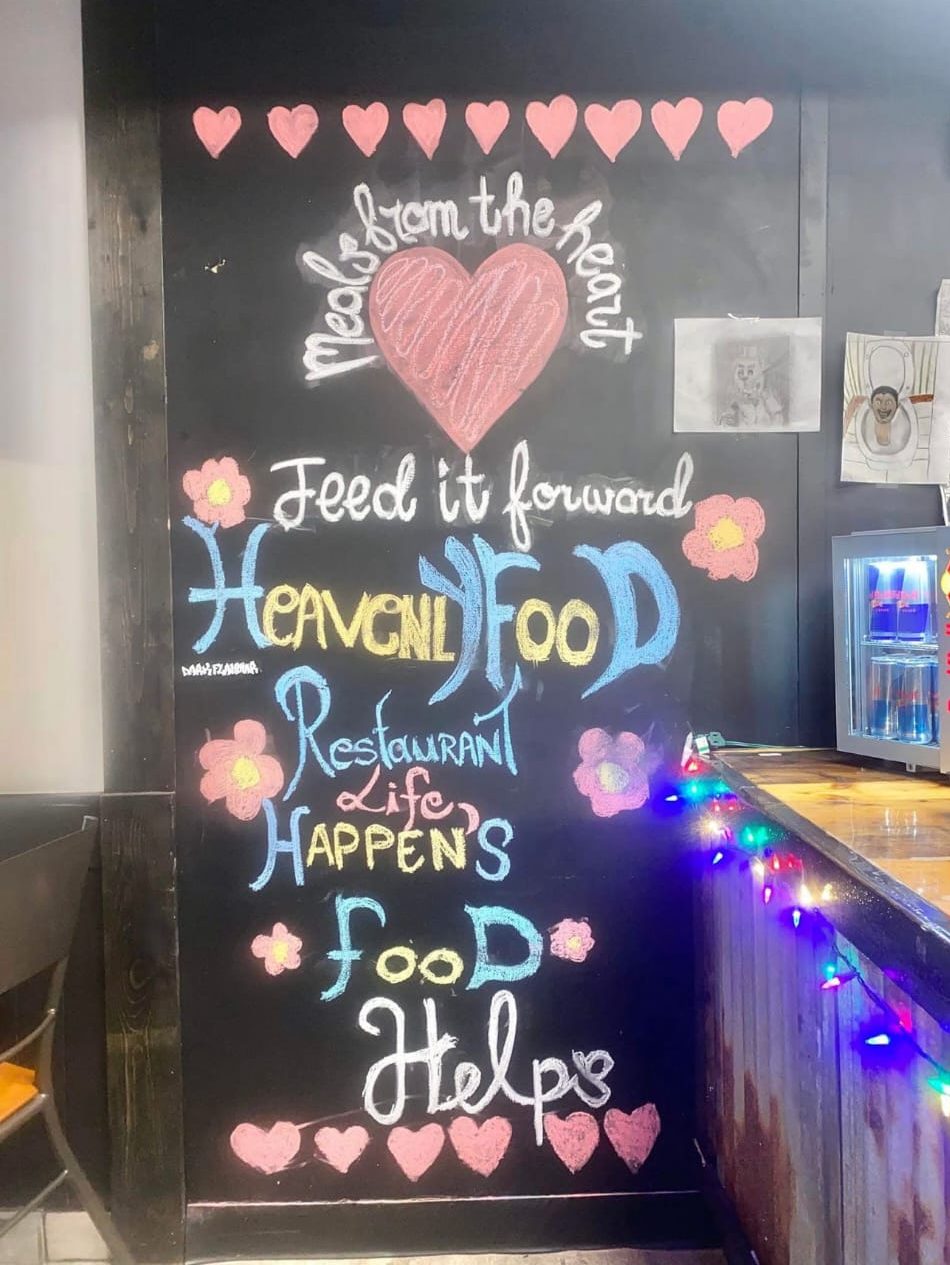 Meals from the heart
Feed it forward
HEAVENLY FOOD
RESTAURANT
Life
HAPPEN'S
FOOD
Helps